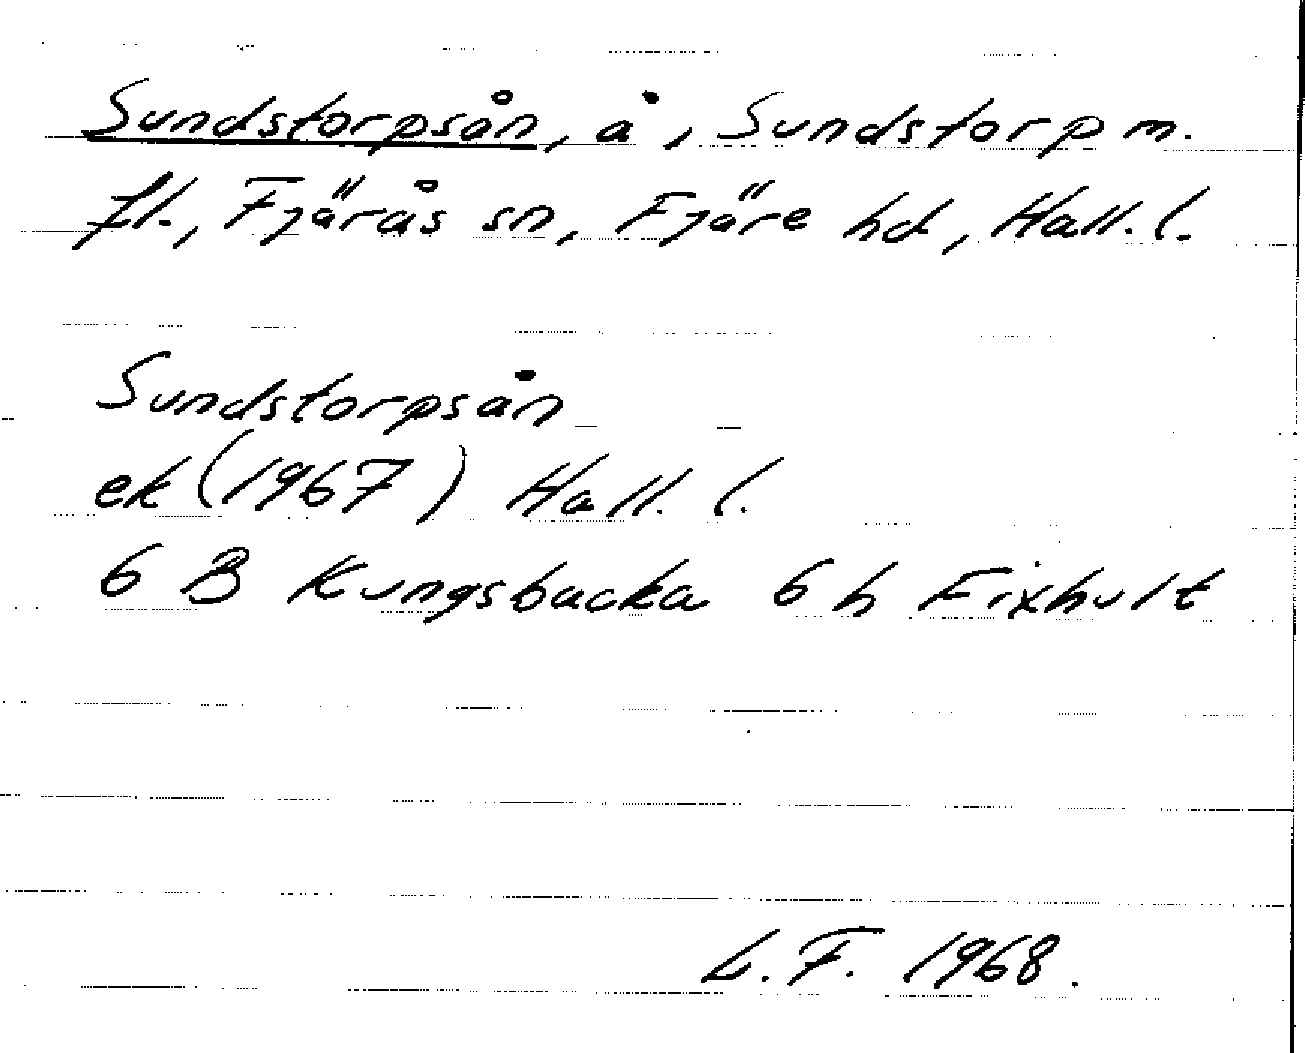 Sundstorpsån, å, Sundstorp m.
fl., Fjärås sn, Fjäre hd, Hall. l.
Sundstorpsån
ek (1967) Hall. l.
6 B Kungsbacka 6 h Fixhult
L. F. 1968.